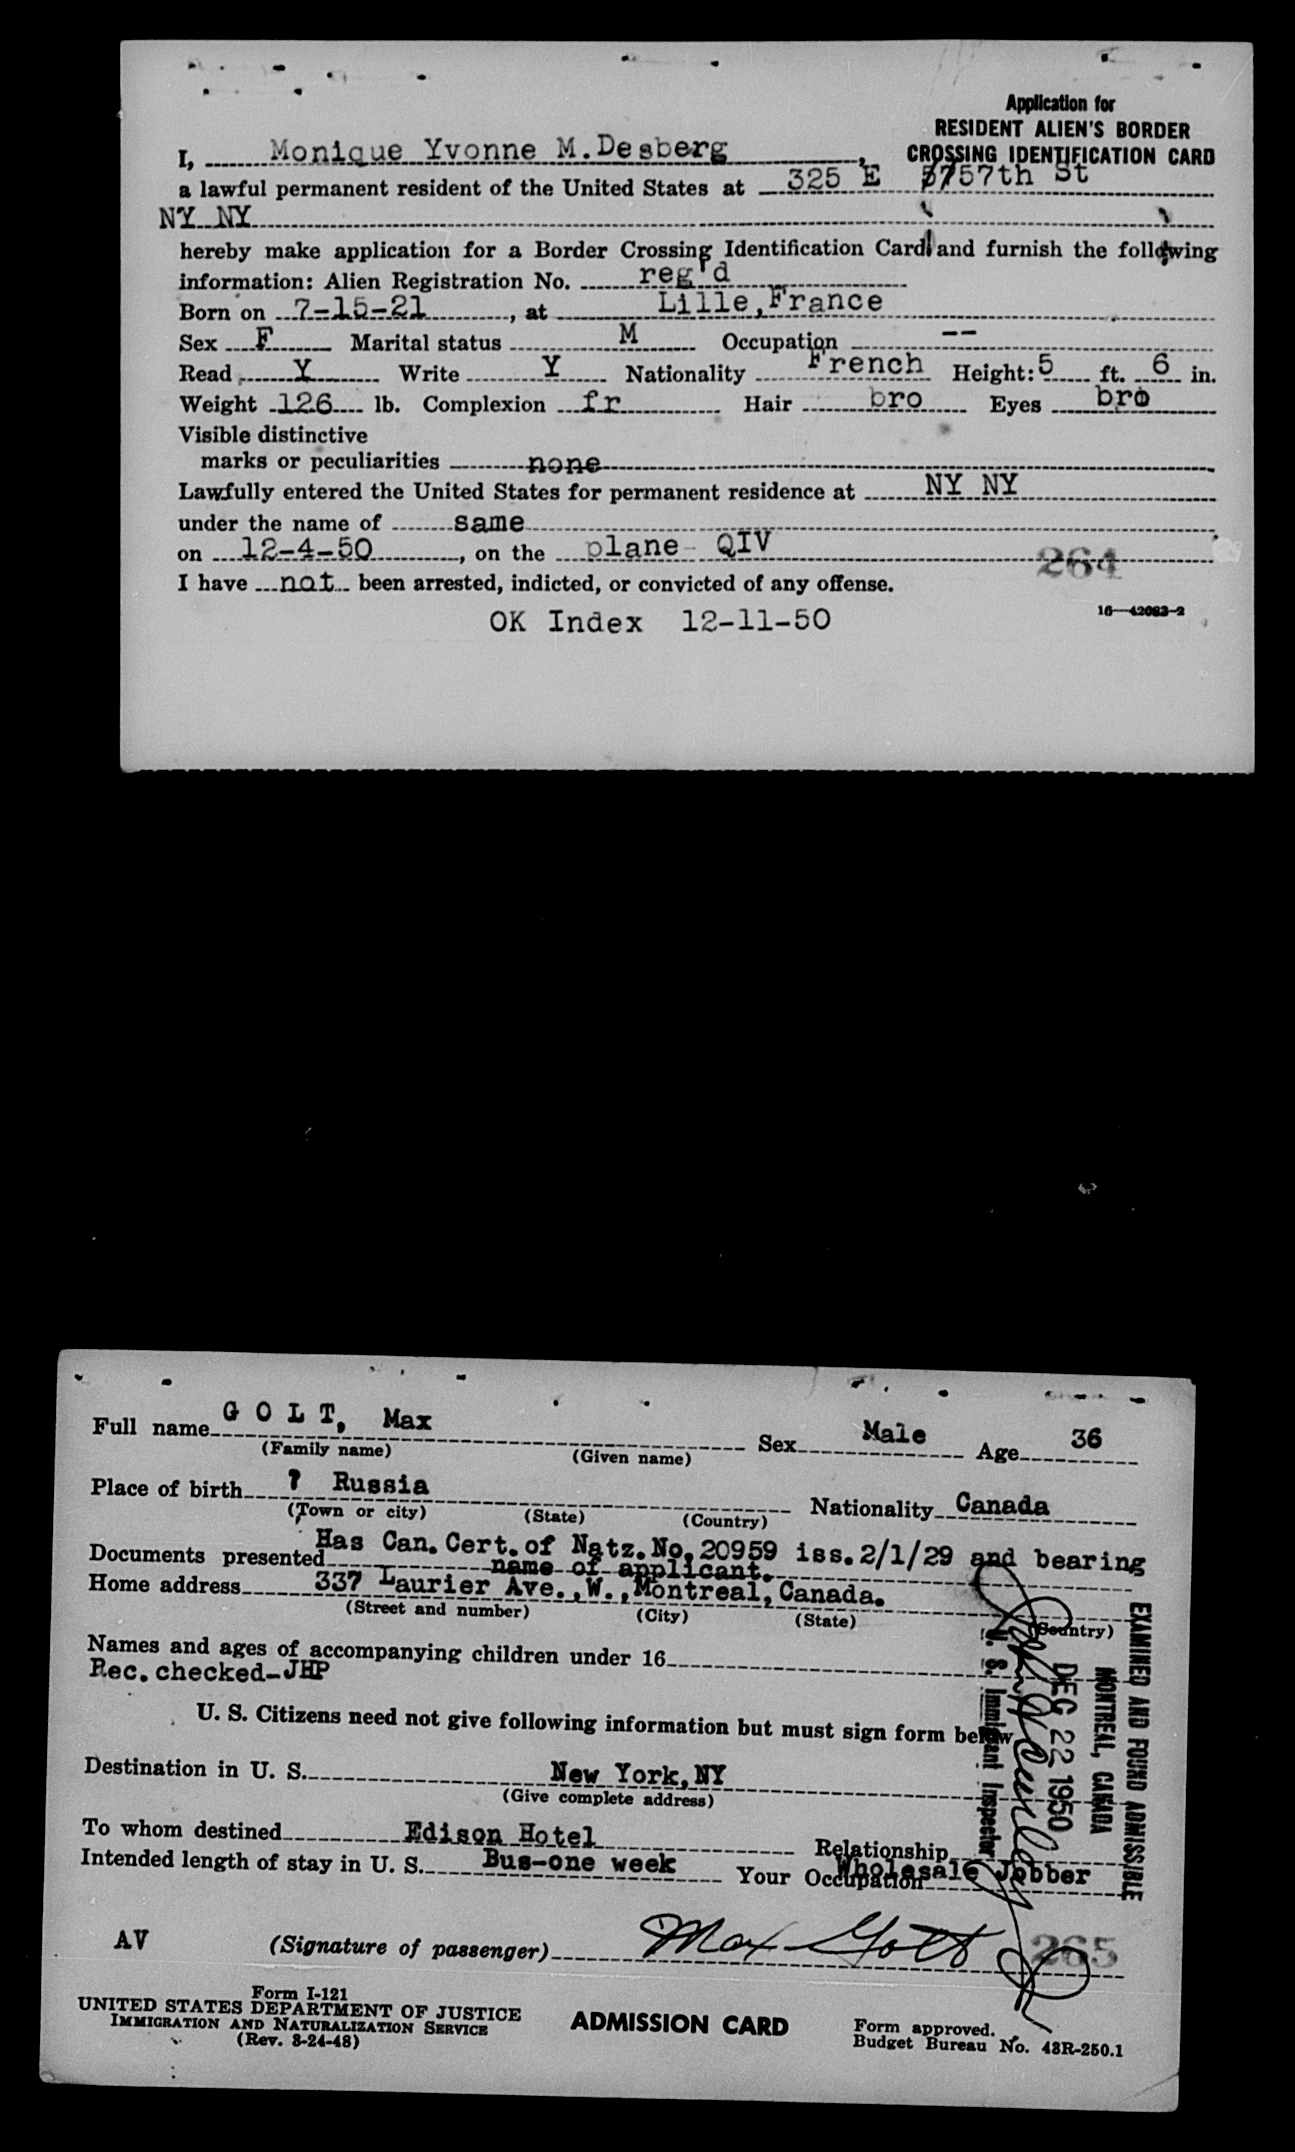 Application for
RESIDENT ALIEN'S BORDER
CROSSING IDENTIFICATION CARD
I, Monique Yvonne M. Desberg,
a lawful permanent resident of the United States at 325 E 57th St
NY NY
hereby make application for a Border Crossing Identification Card and furnish the following
information: Alien Registration No. reg'd
Born on 7-15-21, at Lille, France
Sex F Marital status M Occupation --
Read Y Write Y Nationality French Height: 5 ft. 6 in.
Weight 126 lb. Complexion fr Hair bro Eyes bro
Visible distinctive
marks or peculiarities none
Lawfully entered the United States for permanent residence at NY NY
under the name of same
on 12-4-50, on the plane - QIV
264
I have not been arrested, indicted, or convicted of any offense.
16—42083-2
OK Index 12-11-50
Full name G O L T, Max Sex Male Age 36
(Family name) (Given name)
Place of birth ? Russia Nationality Canada
(Town or city) (State) (Country)
Documents presented Has Can. Cert. of Natz. No. 20959 iss. 2/1/29 and bearing
name of applicant.
Home address 337 Laurier Ave., W., Montreal, Canada.
(Street and number) (City) (State) (Country)
Names and ages of accompanying children under 16
Rec. checked-JHP
U. S. Citizens need not give following information but must sign form below
Destination in U. S. New York, NY
(Give complete address)
To whom destined Edison Hotel Relationship
Intended length of stay in U. S. Bus-one week Your Occupation Wholesale Jobber
EXAMINED AND FOUND ADMISSIBLE
MONTREAL, CANADA
DEC 22 1950
U. S. Immigrant Inspector
AV (Signature of passenger) Max Golt
265
Form I-121
UNITED STATES DEPARTMENT OF JUSTICE
IMMIGRATION AND NATURALIZATION SERVICE
(Rev. 8-24-48)
ADMISSION CARD
Form approved.
Budget Bureau No. 43R-250.1